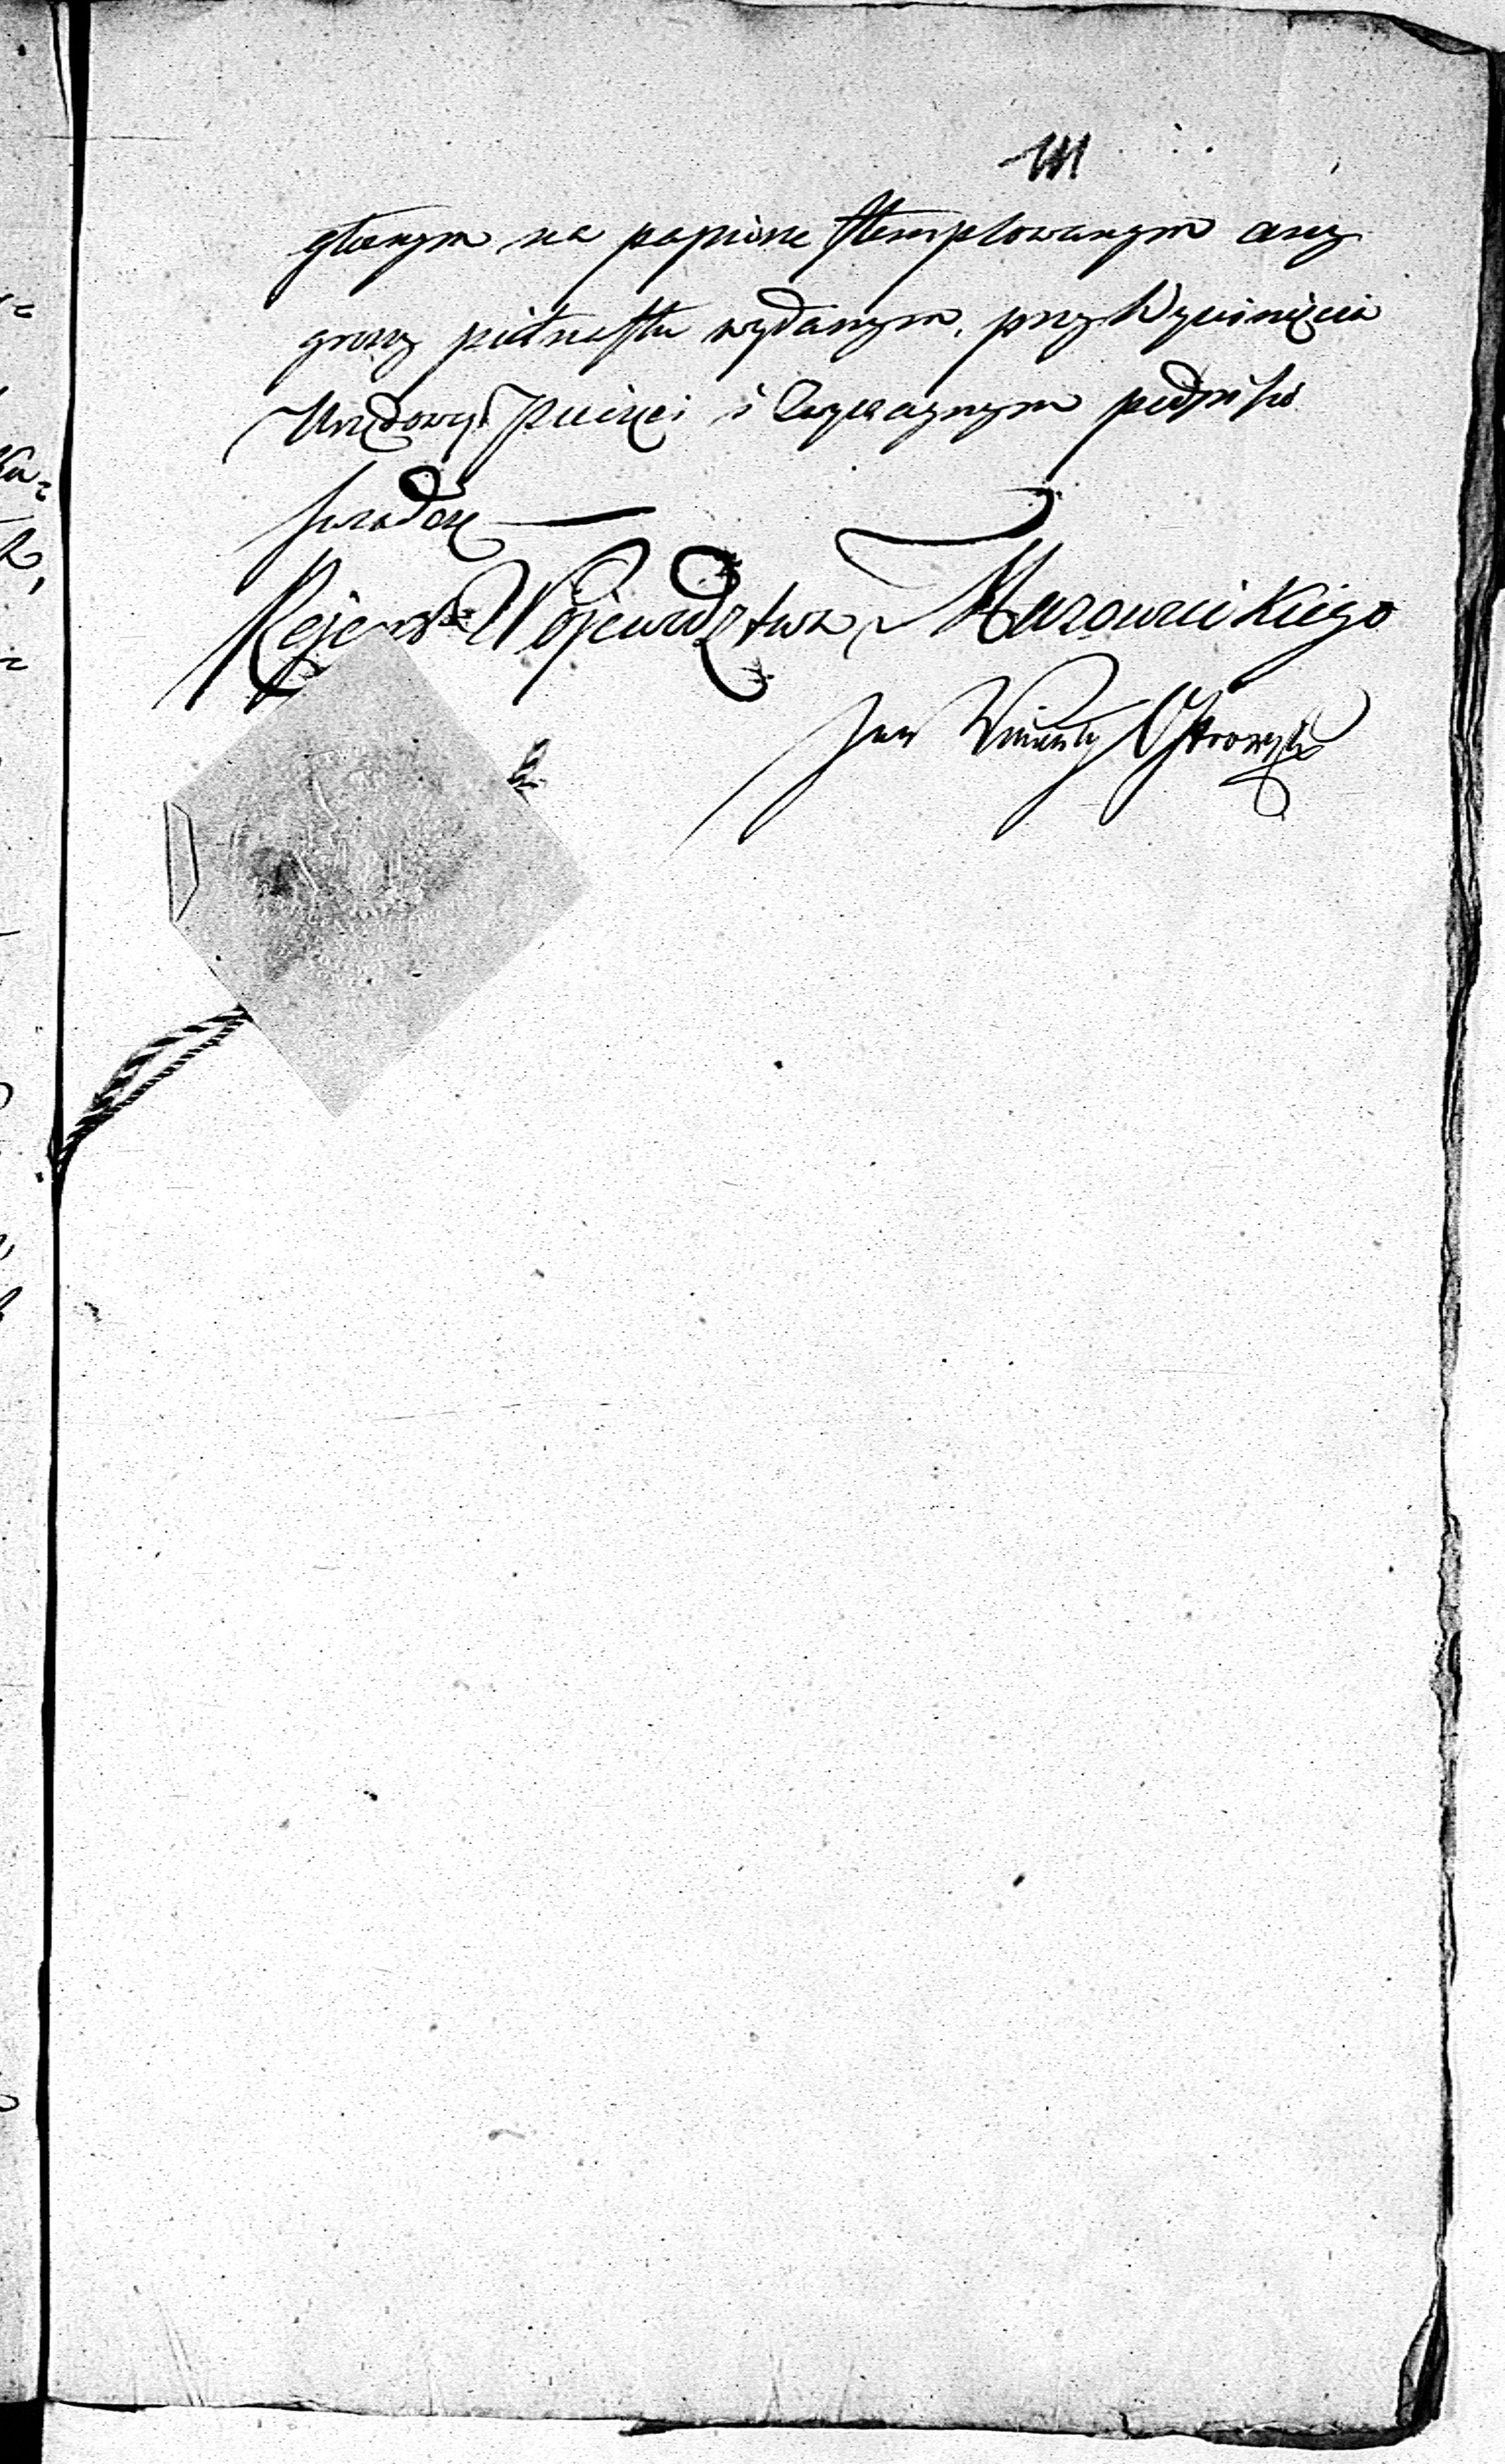 111
głównym na papierze stemplowanym ceny
groszy piętnastu wydanym, przy Wyciśnięciu
Urzędowey Pieczęci i Zwyczaynym podpisie
świadczę
Rejent Województwa Mazowieckiego
Jan Wincenty